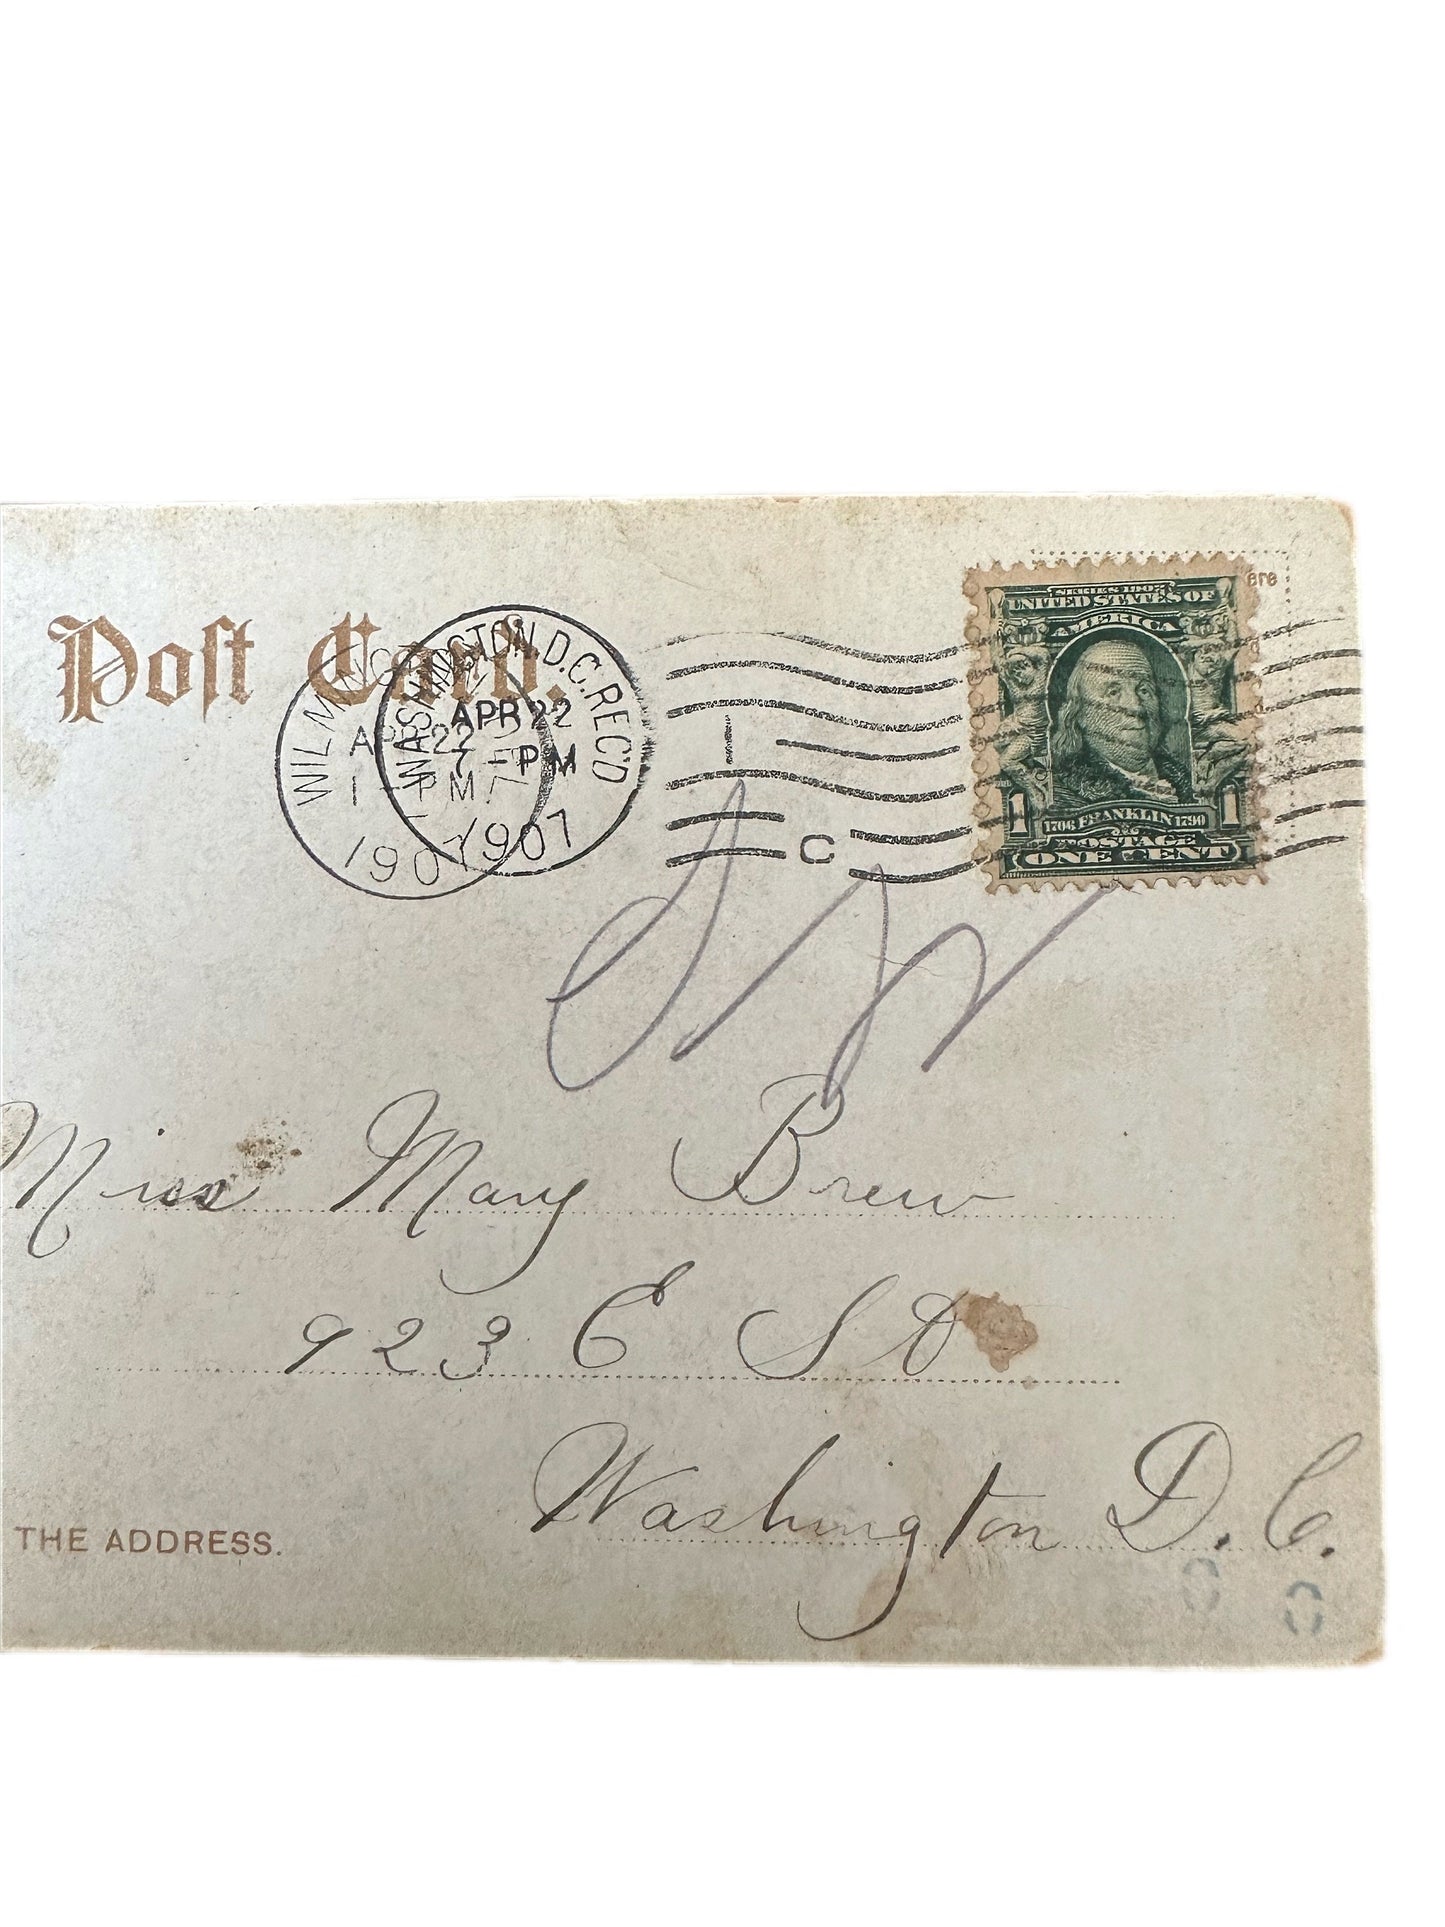 Poſt Card.
WILMINGTON
APR 22
1 - PM
1907
WASHINGTON, D.C. REC'D
APR 22
7 - PM
1907
1
C
SERIES 1902
UNITED STATES OF
AMERICA
1 1
1706 FRANKLIN 1790
POSTAGE
ONE CENT
Miss Mary Brew
923 E St
Washington D.C.
THE ADDRESS.